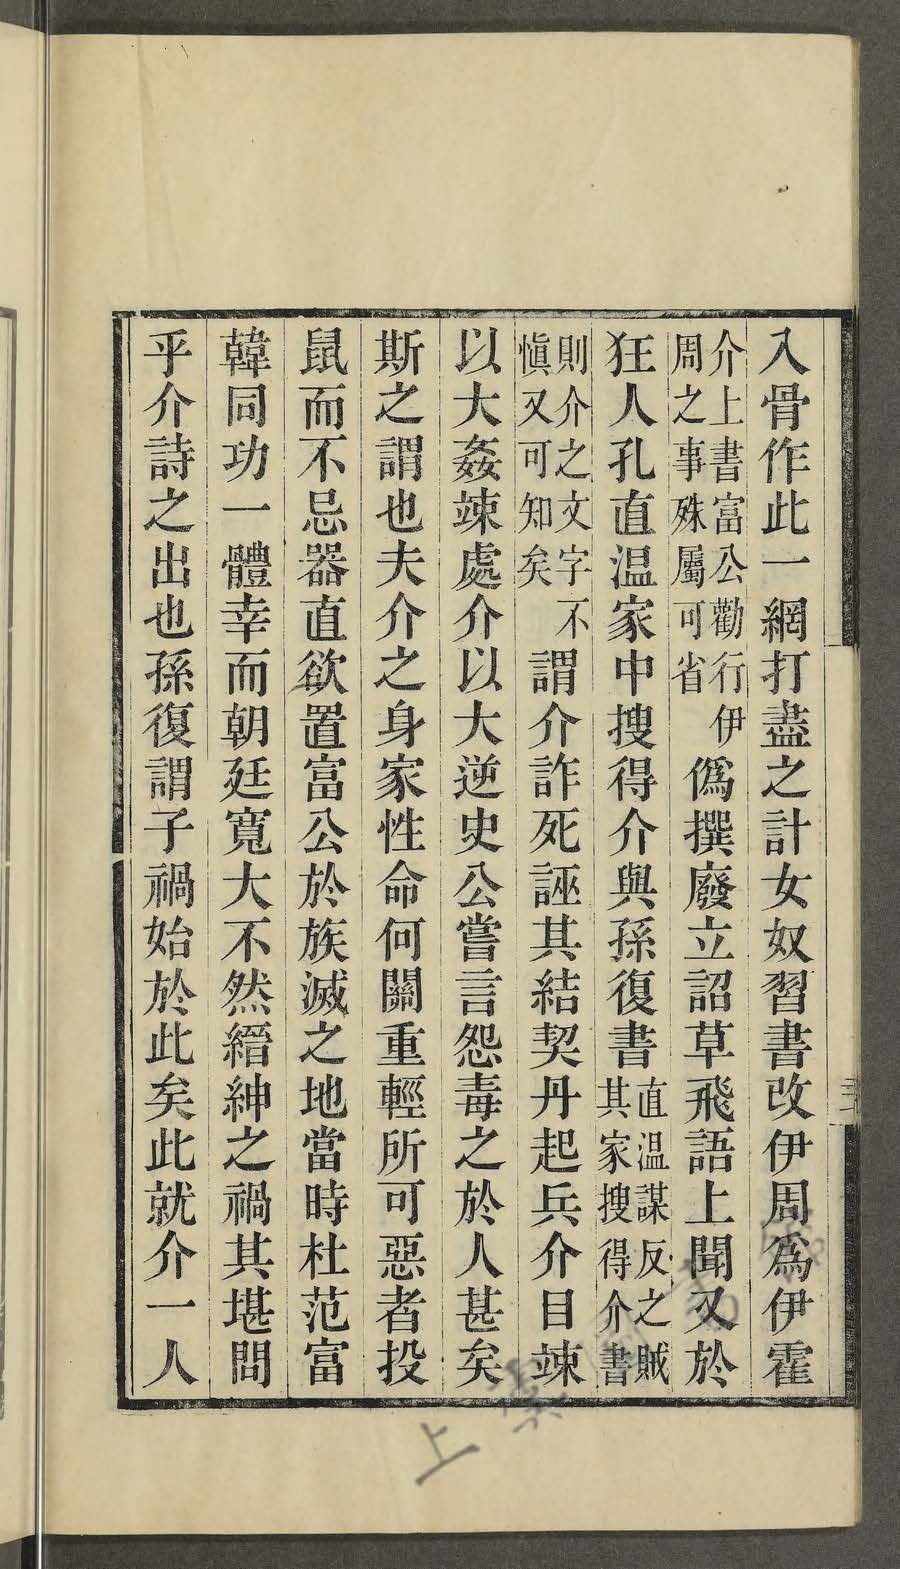 入骨作此一網打盡之計女奴習書改伊周爲伊霍
介上書富公勸行伊
周之事殊屬可省
僞撰廢立詔草飛語上聞又於
狂人孔直温家中搜得介與孫復書
直温謀反之賊
其家搜得介書
則介之文字不
愼又可知矣
謂介詐死誣其結契丹起兵介目竦
以大姦竦處介以大逆史公嘗言怨毒之於人甚矣
斯之謂也夫介之身家性命何關重輕所可惡者投
鼠而不忌器直欲置富公於族滅之地當時杜范富
韓同功一體幸而朝廷寬大不然縉紳之禍其堪問
乎介詩之出也孫復謂子禍始於此矣此就介一人
上